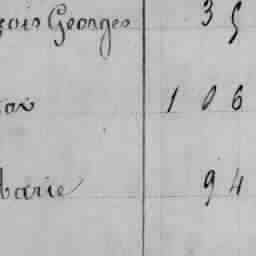 çois Georges 35
106
Marie 94